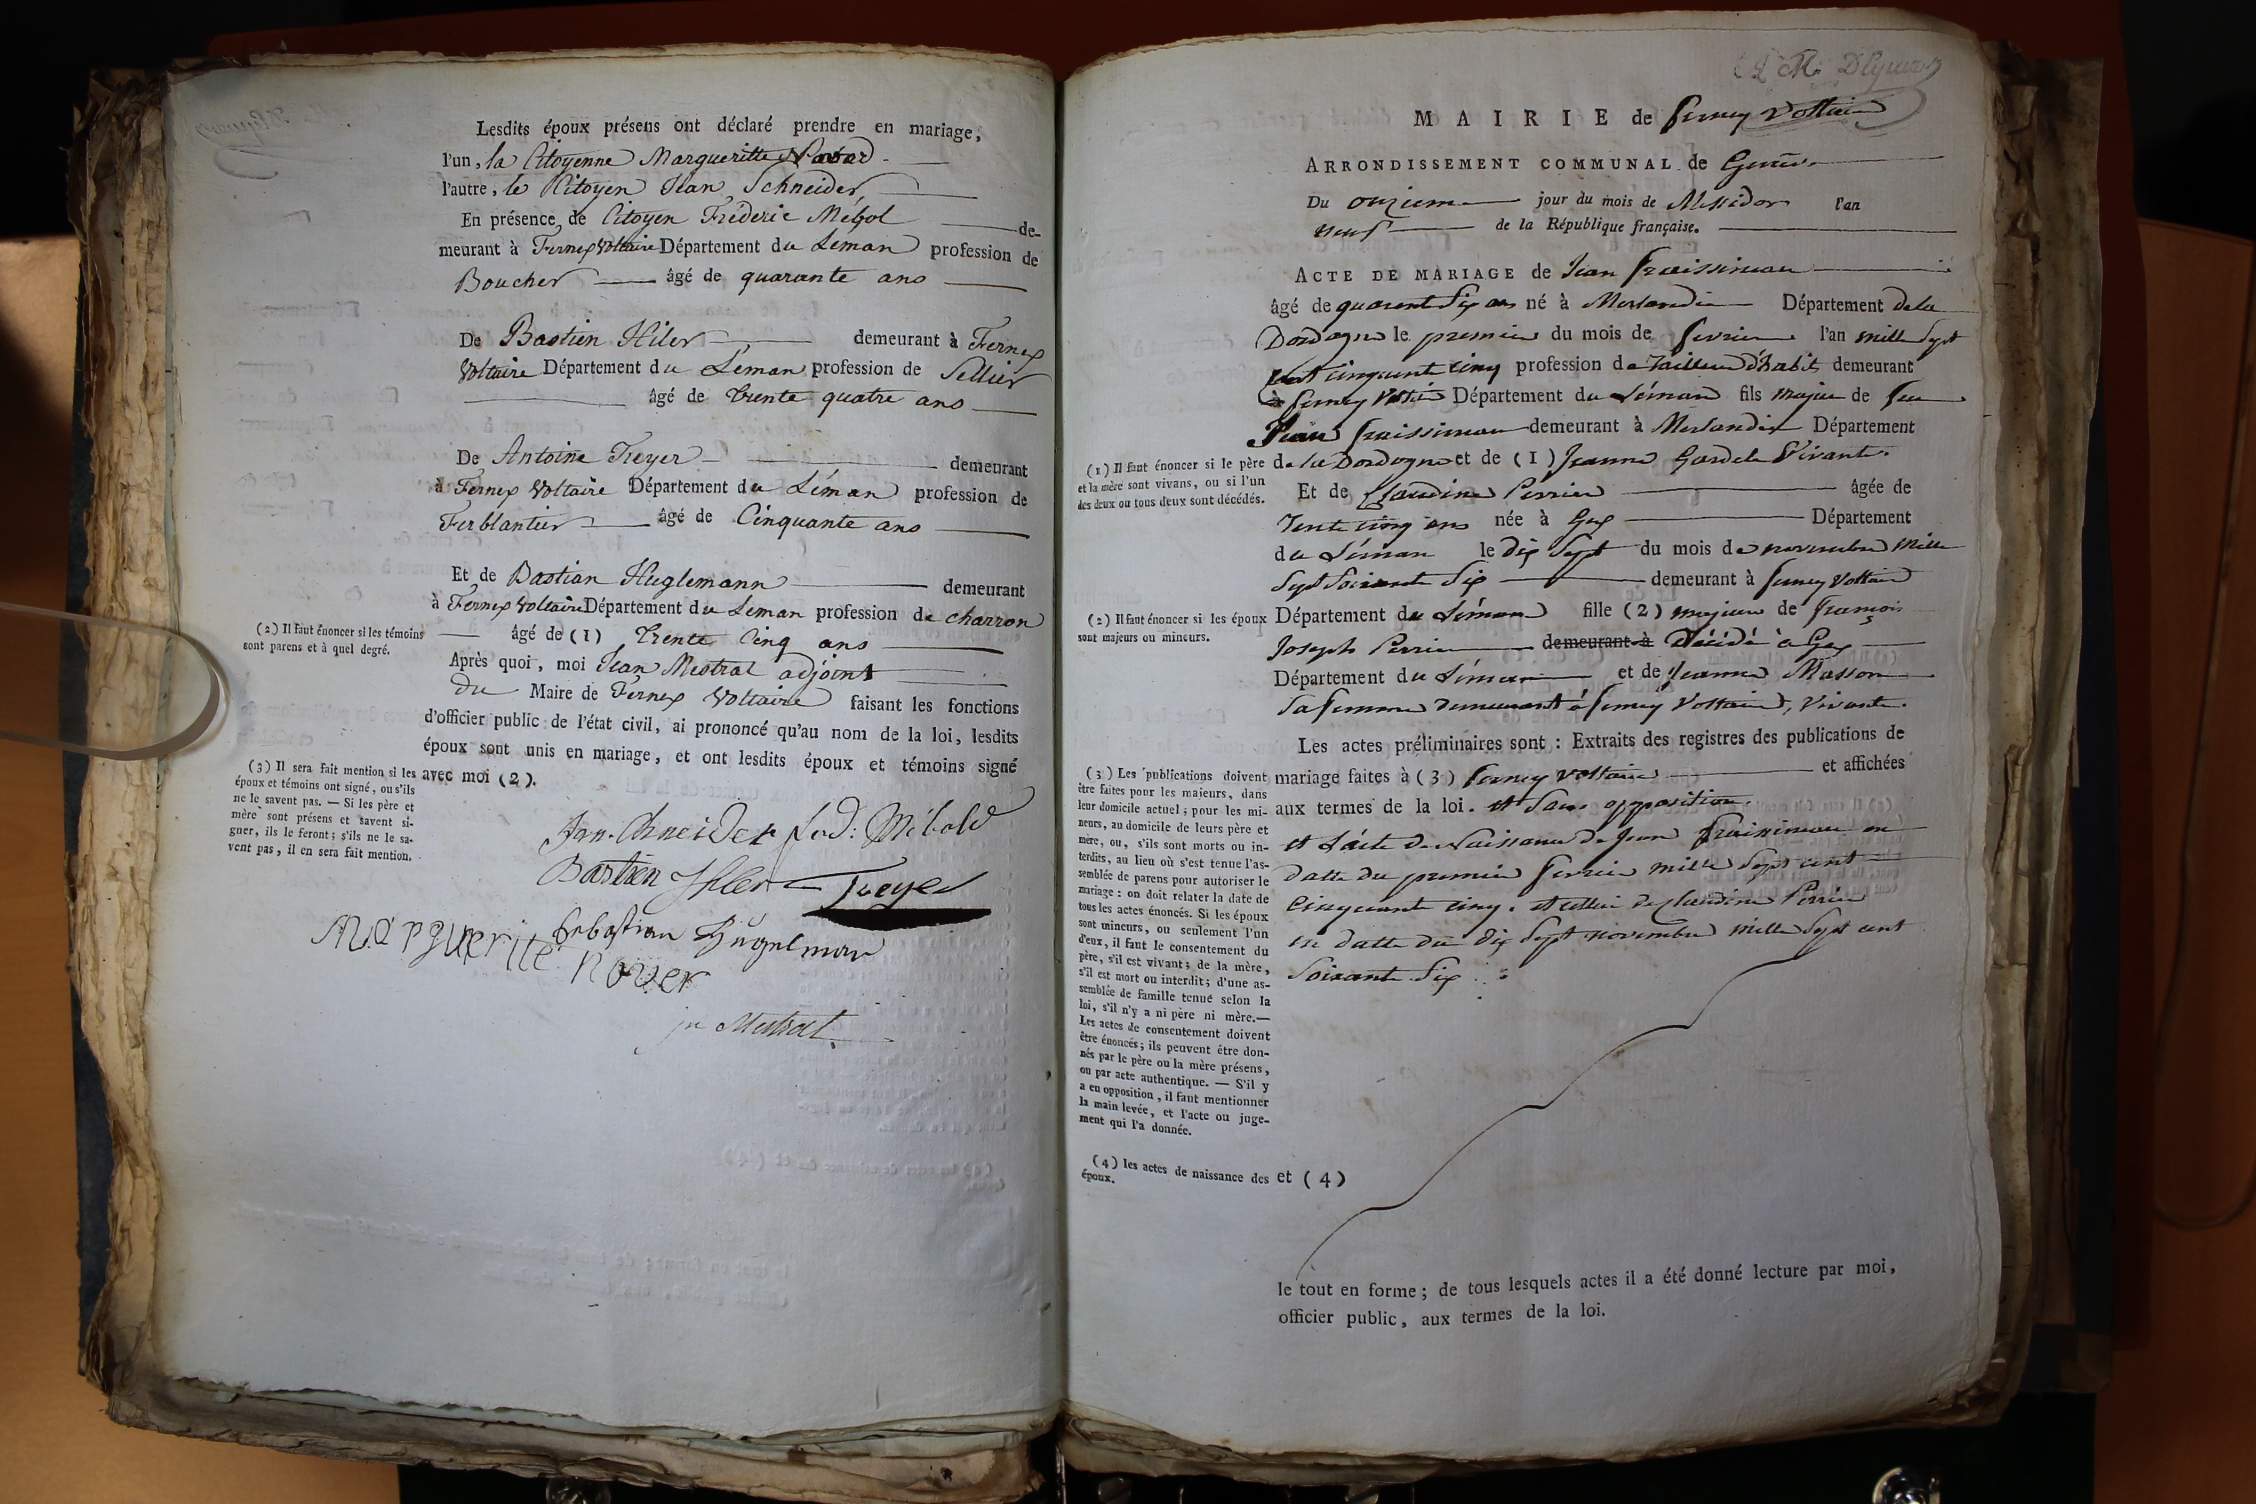 Lesdits époux présens ont déclaré prendre en mariage,
l'un, la Citoyenne Margueritte
l'autre, le Citoyen Jean Schneider
En présence de Citoyen Fréderic Mébol de-
meurant à Fernex Voltaire Département du Léman profession de
Boucher âgé de quarante ans
De Bastien Hiler demeurant à Fernex
Voltaire Département du Léman profession de Sellier
âgé de trente quatre ans
De Antoine Treyer demeurant
à Fernex Voltaire Département du Léman profession de
Ferblantier âgé de Cinquante ans
Et de Bastian Huglemann demeurant
à Fernex Voltaire Département du Leman profession de charron
âgé de (1) trente Cinq ans
(2) Il faut énoncer si les témoins
sont parens et à quel degré.
Après quoi, moi Jean Mestral adjoint
du Maire de Fernex Voltaire faisant les fonctions
d'officier public de l'état civil, ai prononcé qu'au nom de la loi, lesdits
époux sont unis en mariage, et ont lesdits époux et témoins signé
avec moi (2).
(3) Il sera fait mention si les
époux et témoins ont signé, ou s'ils
ne le savent pas. — Si les père et
mère sont présens et savent si-
gner, ils le feront; s'ils ne le sa-
vent pas, il en sera fait mention.
Jan. Chneider fred: Mébold
Bastien Hiler Treyer
Sebastian Hügelman
Marguerite nover
Mestral
MAIRIE de ferney Voltaire
ARRONDISSEMENT COMMUNAL de Genève
Du onzieme jour du mois de Messidor l'an
neuf de la République française.
ACTE DE MARIAGE de Jean fraissineau
âgé de quarent Six ans né à Merlandie Département dela
Dordogne le premier du mois de fevrier l'an mille Sept
cent cinquent cinq profession de Tailleur d'habit demeurant
à ferney Voltaire Département du Léman fils majeur de feu
Jean fraissineau demeurant à Merlandie Département
de la Dordogne et de (1) Jeanne Gardele Vivante.
(1) Il faut énoncer si le père
et la mère sont vivans, ou si l'un
des deux ou tous deux sont décédés.
Et de Claudine Perrier âgée de
Trente cinq ans née à Gex Département
du Léman le dix Sept du mois de novembre mille
Sept Soixante Six demeurant à ferney Voltaire
Département du Léman fille (2) majeure de françois
(2) Il faut énoncer si les époux
sont majeurs ou mineurs.
Joseph Perrier demeurant à Décédé à Gex
Département du Léman et de Jeanne Masson
Sa femme demeurant à ferney Voltaire, Vivante.
Les actes préliminaires sont : Extraits des registres des publications de
mariage faites à (3) ferney Voltaire et affichées
aux termes de la loi. et Sans opposition.
et L'acte de Naissance de Jean fraissineau en
datte du premier fevrier mille Sept cent
Cinquante cinq. et celui de Claudine Perrier
en datte du dix Sept novembre mille Sept cent
Soixante Six
(3) Les publications doivent
être faites pour les majeurs, dans
leur domicile actuel; pour les mi-
neurs, au domicile de leurs père et
mère, ou, s'ils sont morts ou in-
terdits, au lieu où s'est tenue l'as-
semblée de parens pour autoriser le
mariage : on doit relater la date de
tous les actes énoncés. Si les époux
sont mineurs, ou seulement l'un
d'eux, il faut le consentement du
père, s'il est vivant; de la mère,
s'il est mort ou interdit; d'une as-
semblée de famille tenue selon la
loi, s'il n'y a ni père ni mère.—
Les actes de consentement doivent
être énoncés; ils peuvent être don-
nés par le père ou la mère présens,
ou par acte authentique. — S'il y
a eu opposition, il faut mentionner
la main levée, et l'acte ou juge-
ment qui l'a donnée.
(4) les actes de naissance des
époux.
et (4)
le tout en forme; de tous lesquels actes il a été donné lecture par moi,
officier public, aux termes de la loi.